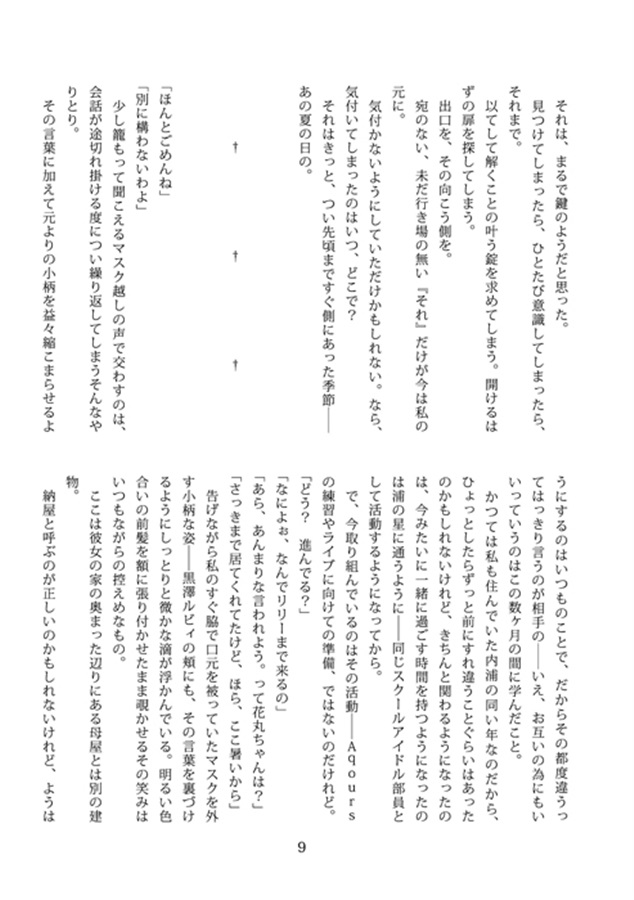 それは、まるで鍵のようだと思った。
見つけてしまったら、ひとたび意識してしまったら、
それまで。
以てして解くことの叶う錠を求めてしまう。開けるは
ずの扉を探してしまう。
出口を、その向こう側を。
宛のない、未だ行き場の無い『それ』だけが今は私の
元に。
気付かないようにしていただけかもしれない。なら、
気付いてしまったのはいつ、どこで？
それはきっと、つい先頃まですぐ側にあった季節――
あの夏の日の。
† † †
「ほんとごめんね」
「別に構わないわよ」
少し籠もって聞こえるマスク越しの声で交わすのは、
会話が途切れ掛ける度につい繰り返してしまうそんなや
りとり。
その言葉に加えて元よりの小柄を益々縮こまらせるよ
うにするのはいつものことで、だからその都度違うっ
てはっきり言うのが相手の――いえ、お互いの為にもい
いっていうのはこの数ヶ月の間に学んだこと。
かつては私も住んでいた内浦の同い年なのだから、
ひょっとしたらずっと前にすれ違うことぐらいはあった
のかもしれないけれど、きちんと関わるようになったの
は、今みたいに一緒に過ごす時間を持つようになったの
は浦の星に通うように――同じスクールアイドル部員と
して活動するようになってから。
で、今取り組んでいるのはその活動――Aqours
の練習やライブに向けての準備、ではないのだけれど。
「どう？　進んでる？」
「なによぉ、なんでリリーまで来るの」
「あら、あんまりな言われよう。って花丸ちゃんは？」
「さっきまで居てくれてたけど、ほら、ここ暑いから」
告げながら私のすぐ脇で口元を被っていたマスクを外
す小柄な姿――黒澤ルビィの頬にも、その言葉を裏づけ
るようにしっとりと微かな滴が浮かんでいる。明るい色
合いの前髪を額に張り付かせたまま覗かせるその笑みは
いつもながらの控えめなもの。
ここは彼女の家の奥まった辺りにある母屋とは別の建
物。
納屋と呼ぶのが正しいのかもしれないけれど、ようは
9